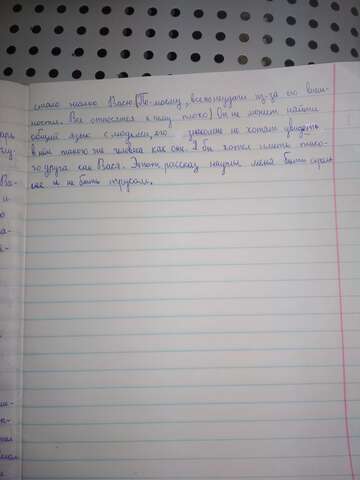 стало жалко Васю(По-моему, все его из-за его вниш-
ности. Все относятся к нему плохо) Он не может найти
общий язык с людьми, его не хотят увидеть
в нём такого же человека как они. Я бы хотел иметь тако-
го друга как Вася. Этот рассказ научил меня быть
и не быть трусом.
арь
Ва-
и
ю
а-